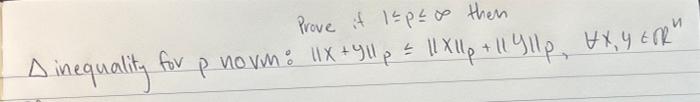 Prove if 1≤p≤∞ then
Δ inequality for p norm: ||x+y||p ≤ ||x||p + ||y||p, ∀x,y ∈ ℝⁿ